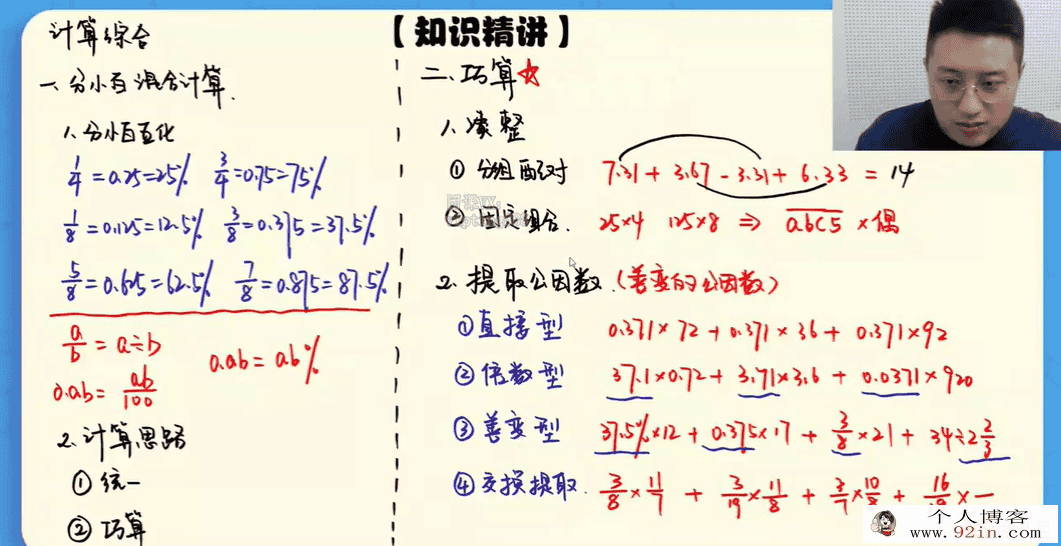 【知识精讲】
计算综合
一、分小百混合计算.
1.分小百互化
1/4=0.25=25% 3/4=0.75=75%
1/8=0.125=12.5% 3/8=0.375=37.5%
5/8=0.625=62.5% 7/8=0.875=87.5%
a/b=a÷b
0.ab=ab%
0.ab=ab/100
2.计算思路
①统一
②巧算
二、巧算☆
1.凑整
①分组配对 7.31+3.67-3.31+6.33=14
②固定组合. 25×4 125×8 ⇒ abc5×偶
2.提取公因数.(善变的公因数)
①直接型 0.371×72+0.371×36+0.371×92
②倍数型 37.1×0.72+3.71×3.6+0.0371×920
③善变型 37.5%×12+0.375×17+3/8×21+34÷2 2/3
④交换提取. 3/8×11/7+3/19×11/8+
个人博客
www.92in.com